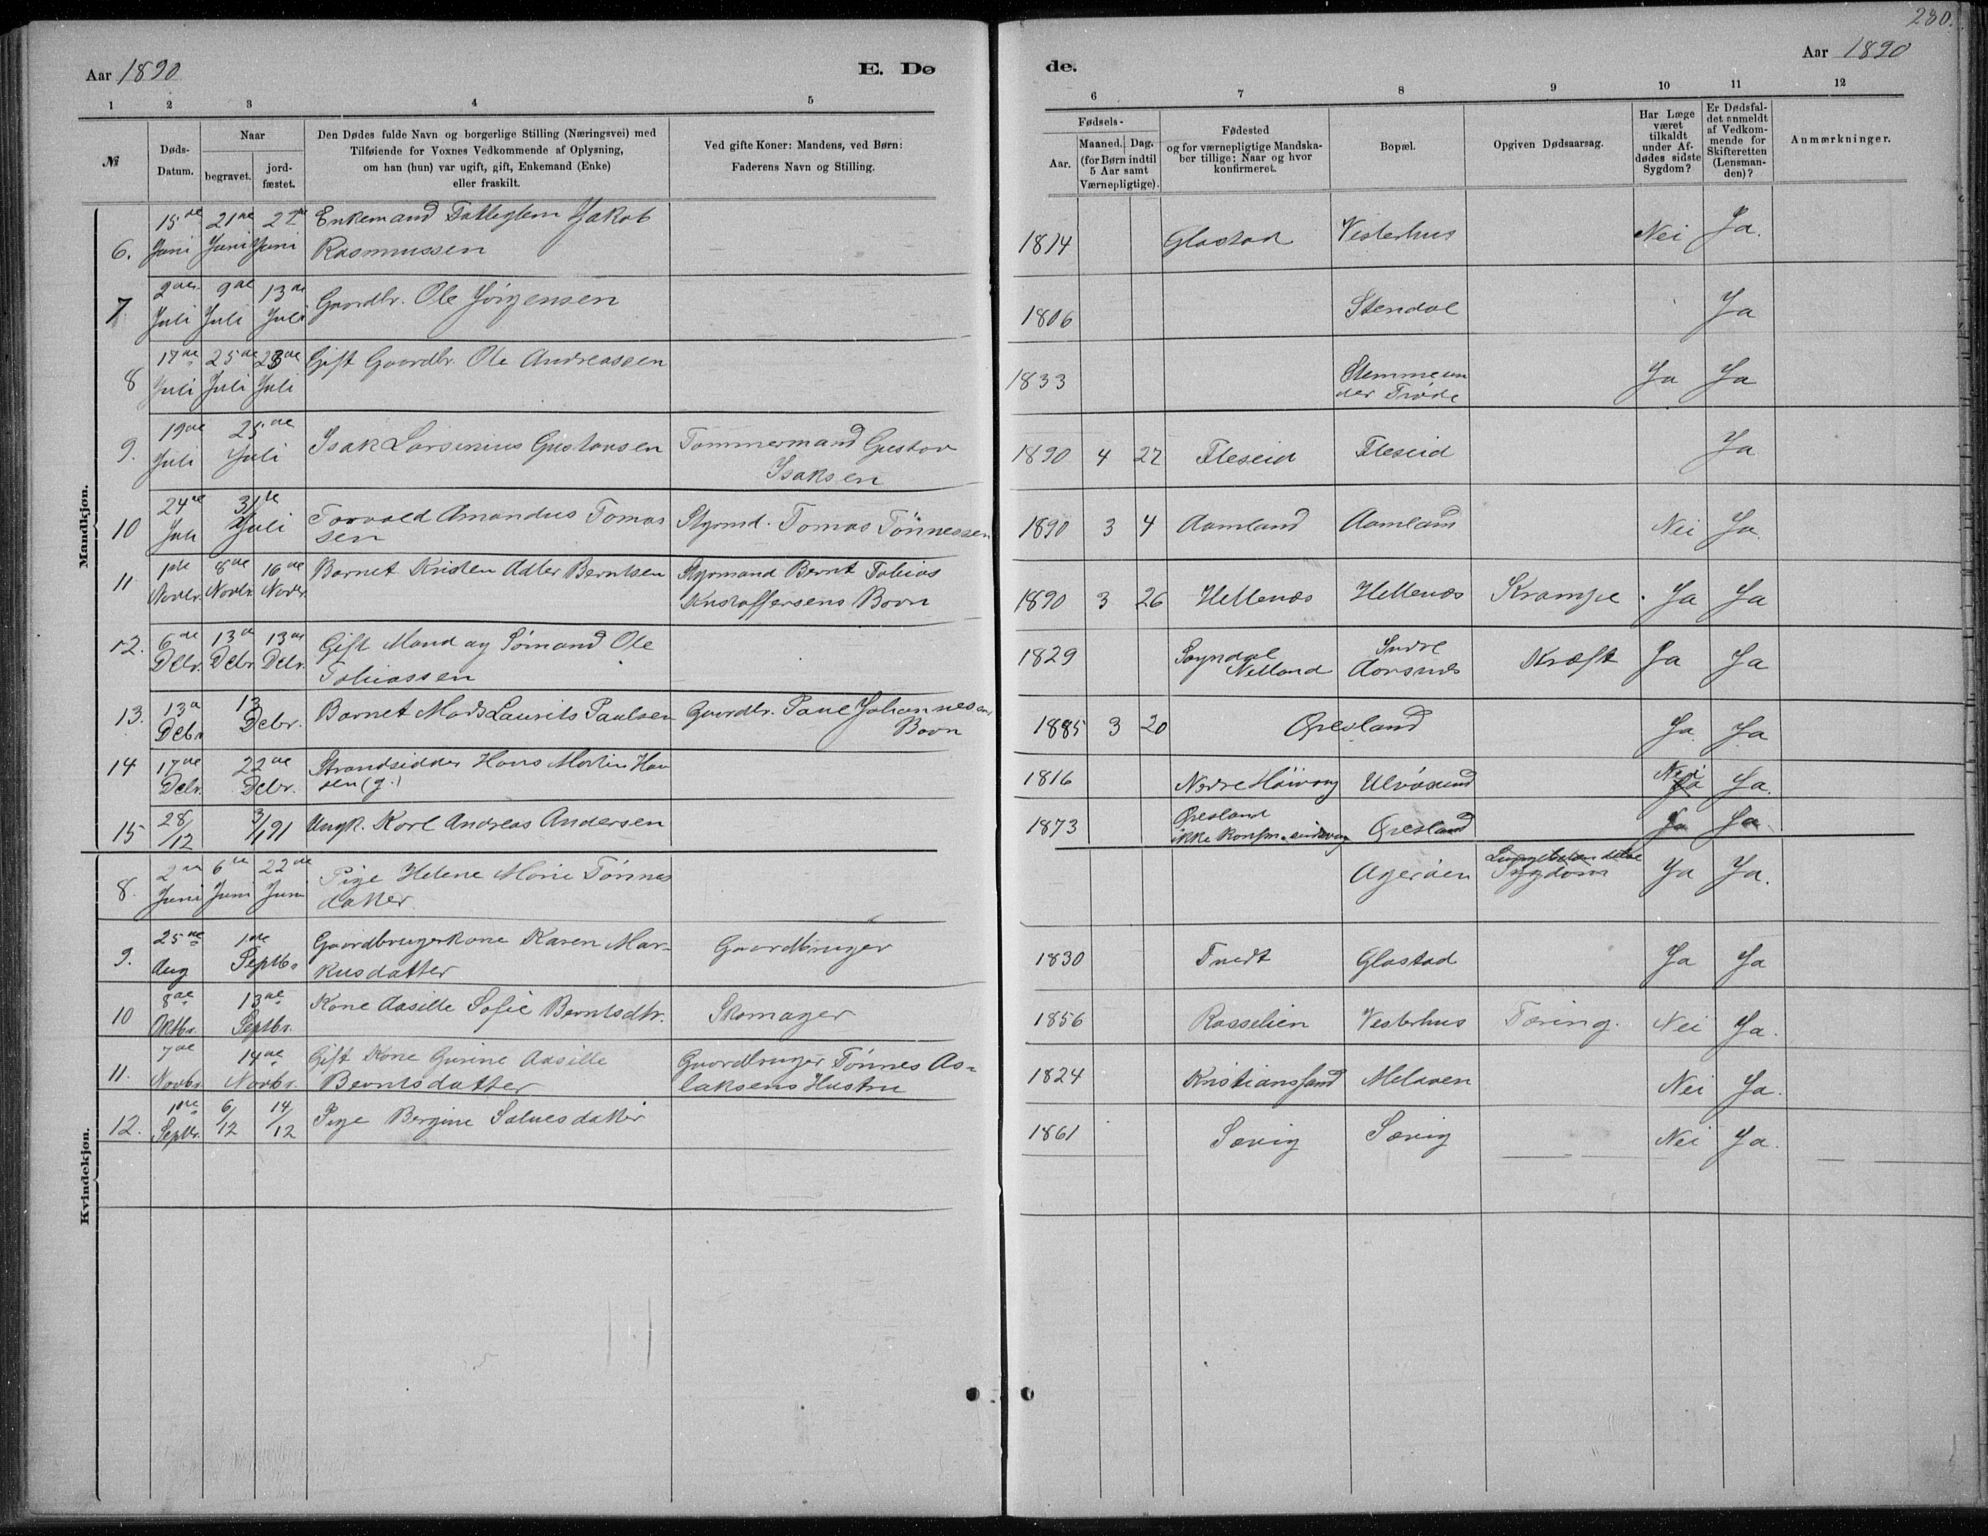 280.
Aar 1890
E. Dø
de.
Aar 1890
1 2 3 4 5 6 7 8 9 10 11 12
№
Døds-
Datum.
Naar
begravet.
jord-
fæstet.
Den Dødes fulde Navn og borgerlige Stilling (Næringsvei) med
Tilføiende for Voxnes Vedkommende af Oplysning,
om han (hun) var ugift, gift, Enkemand (Enke)
eller fraskilt.
Ved gifte Koner: Mandens, ved Børn:
Faderens Navn og Stilling.
Fødsels-
Aar.
Maaned. Dag.
(for Børn indtil
5 Aar samt
Værnepligtige).
Fødested
og for værnepligtige Mandska-
ber tillige: Naar og hvor
konfirmeret.
Bopæl.
Opgiven Dødsaarsag.
Har Læge
været
tilkaldt
under Af-
dødes sidste
Sygdom?
Er Dødsfal-
det anmeldt
af Vedkom-
mende for
Skifteretten
(Lensman-
den)?
Anmærkninger.
Mandkjøn.
6. 15de Juni 21de Juni 22de Juni Enkemand Fattiglem Jakob
Rasmussen 1814 Glastad Vesterhus Nei Ja.
7 2den Juli 9de Juli 13de Juli Gaardbr. Ole Jörgensen 1806 Stendal Ja
8 17de Juli 25de Juli Juli Gift Gaardbr. Ole Andreassen 1833 Stemmeun
der Trøde Ja Ja
9. 19de Juli 25de Juli Isak Larsinius Gustavsen Tømmermand Gustav
Isaksen 1890 4 27 Fleseid Fleseid Ja
10 24de Juli 31te Juli Torvald Amandus Tomas
sen Styrmd. Tomas Tönnessen 1890 3 4 Aamland Aamland Nei Ja.
11 1ste Novbr. 8de Novbr. 16de Novbr. Barnet Kristen Adler Berntsen Styrmand Bernt Tobias
Kristoffersens Barn 1890 3 26 Hellenæs Hellenæs Krampe. Ja Ja
12. 6de Debr. 13de Debr. 13de Debr. Gift Mand og Sömand Ole
Tobiassen 1829 Sogndal
Netland Indre
Aarsnes Kræft Ja Ja
13. 13de Debr. 13 Debr. Barnet Mads Laurits Paulsen Gaardbr. Paul Johannesens
Barn 1885 3 20 Öresland Ja. Ja
14 17de Debr. 22de Debr. Strandsidder Hans Martin Han
sen (g.) 1816 Nedre Höivaag Ulvösund Nei
Ja Ja.
15 28/12 3/1 91 Ungk. Karl Andreas Andersen 1873 Öresland
ikke konfm. Öresland Ja Ja
Kvindekjøn.
8. 2den Juni 6te Juni 22de Juni Pige Helene Marie Tönnes
datter. Ageröen Sygdom Ja Ja.
9. 25de Aug 1ste Septbr. Gaardbrugerkone Karen Mar-
kusdatter Gaardbruger 1830 Tvedt Glastad Ja Ja
10 8de Oktbr. 13de Septbr. Kone Aasille Sofie Berntsdtr. Skomager 1856 Rosselien Vesterhus Tæring. Nei Ja.
11. 7de Novbr. 14de Novbr. Gift Kone Gurine Aasille
Berntsdatter Gaardbruger Tönnes As-
laksens Hustru 1824 Kristianssand Melaven Nei Ja.
12. 1ste Septbr. 6/12 14/12 Pige Bergine Salvesdatter 1861 Sævig Sævig Nei Ja.